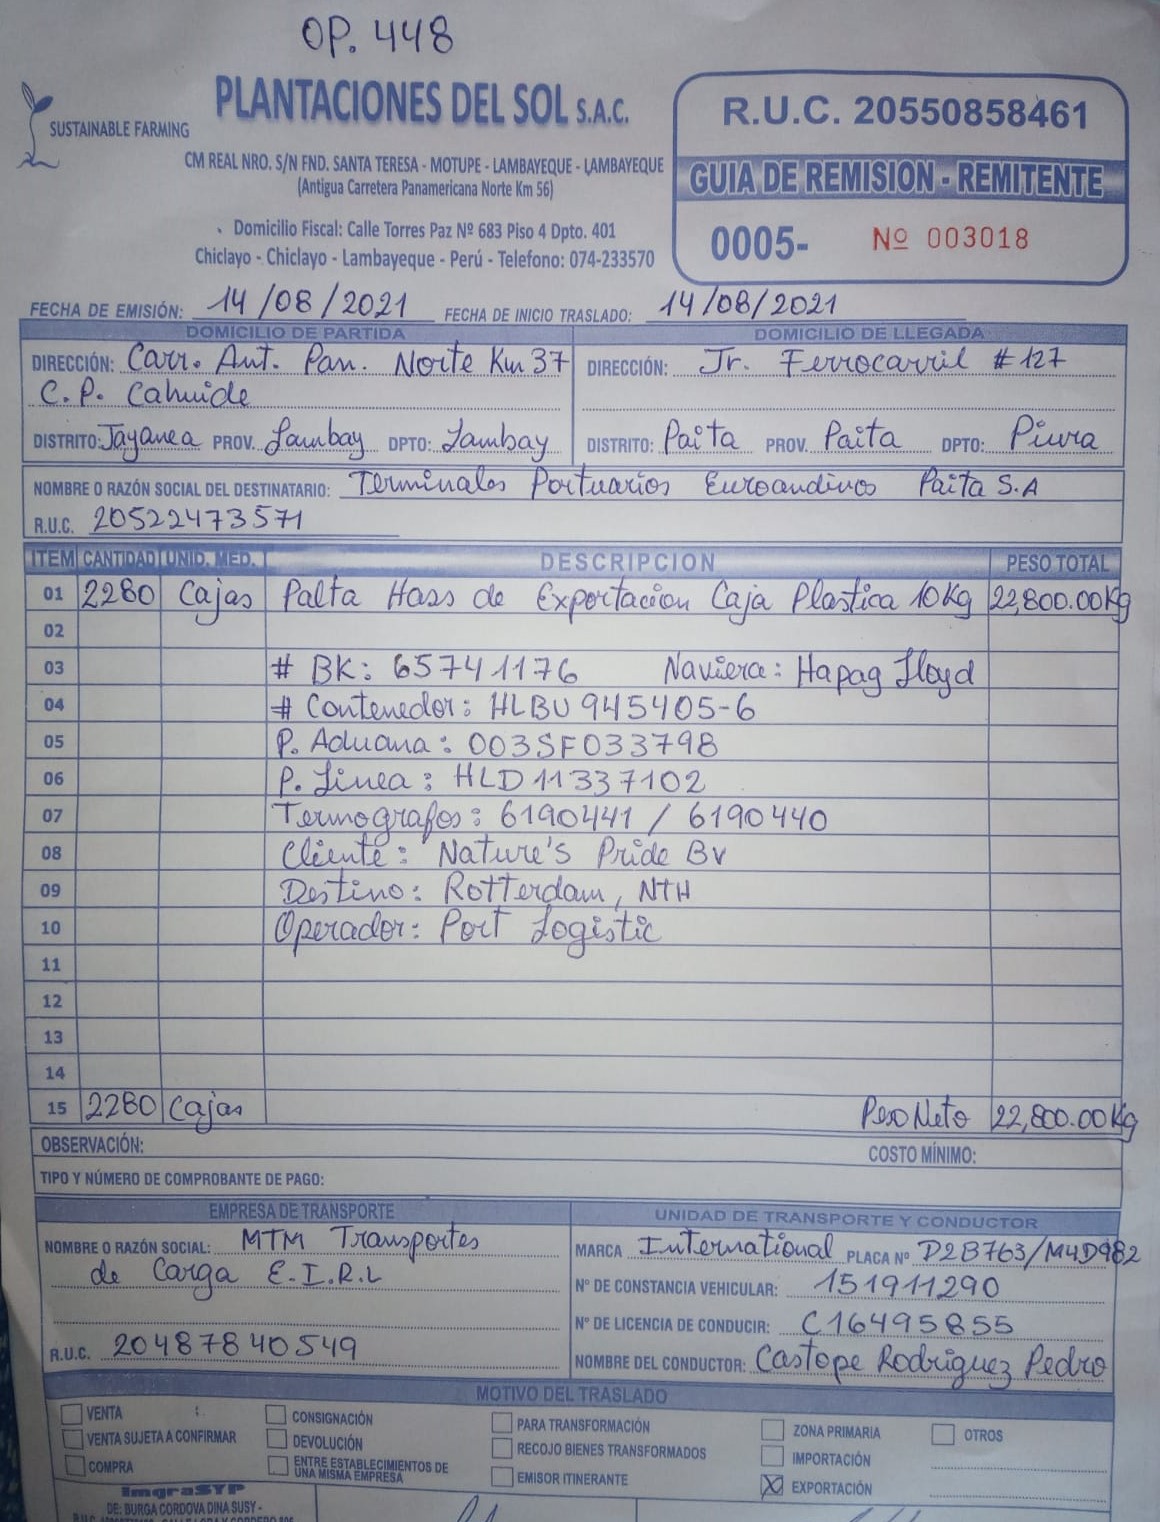 OP. 448
SUSTAINABLE FARMING
PLANTACIONES DEL SOL S.A.C.
CM REAL NRO. S/N FND. SANTA TERESA - MOTUPE - LAMBAYEQUE - LAMBAYEQUE
(Antigua Carretera Panamericana Norte Km 56)
Domicilio Fiscal: Calle Torres Paz Nº 683 Piso 4 Dpto. 401
Chiclayo - Chiclayo - Lambayeque - Perú - Telefono: 074-233570
R.U.C. 20550858461
GUIA DE REMISION - REMITENTE
0005- Nº 003018
FECHA DE EMISIÓN: 14/08/2021 FECHA DE INICIO TRASLADO: 14/08/2021
DOMICILIO DE PARTIDA
DIRECCIÓN: Carr. Ant. Pan. Norte Km 37
C.P. Cahuide
DISTRITO: Jayanca PROV. Lambay DPTO: Lambay
DOMICILIO DE LLEGADA
DIRECCIÓN: Jr. Ferrocarril #127
DISTRITO: Paita PROV. Paita DPTO: Piura
NOMBRE O RAZÓN SOCIAL DEL DESTINATARIO: Terminales Portuarios Euroandinos Paita S.A
R.U.C. 20522473571
ITEM CANTIDAD UNID. MED. DESCRIPCION PESO TOTAL
01 2280 Cajas Palta Hass de Exportacion Caja Plastica 10Kg 22,800.00Kg
02
03 # BK: 65741176 Naviera: Hapag Lloyd
04 # Contenedor: HLBU 945405-6
05 P. Aduana: 003SF033798
06 P. Linea: HLD11337102
07 Termografos: 6190441 / 6190440
08 Cliente: Nature's Pride BV
09 Destino: Rotterdam, NTH
10 Operador: Port Logistic
11
12
13
14
15 2280 Cajas Peso Neto 22,800.00Kg
OBSERVACIÓN:
COSTO MÍNIMO:
TIPO Y NÚMERO DE COMPROBANTE DE PAGO:
EMPRESA DE TRANSPORTE
NOMBRE O RAZÓN SOCIAL: MTM Transportes
de Carga E.I.R.L
R.U.C. 20487840549
UNIDAD DE TRANSPORTE Y CONDUCTOR
MARCA International PLACA Nº D2B763/M4D982
Nº DE CONSTANCIA VEHICULAR: 151911290
Nº DE LICENCIA DE CONDUCIR: C16495855
NOMBRE DEL CONDUCTOR: Castope Rodriguez Pedro
MOTIVO DEL TRASLADO
VENTA
VENTA SUJETA A CONFIRMAR
COMPRA
CONSIGNACIÓN
DEVOLUCIÓN
ENTRE ESTABLECIMIENTOS DE
UNA MISMA EMPRESA
PARA TRANSFORMACIÓN
RECOJO BIENES TRANSFORMADOS
EMISOR ITINERANTE
ZONA PRIMARIA
IMPORTACIÓN
X EXPORTACIÓN
OTROS
ImgraSYP
DE: BURGA CORDOVA DINA SUSY -